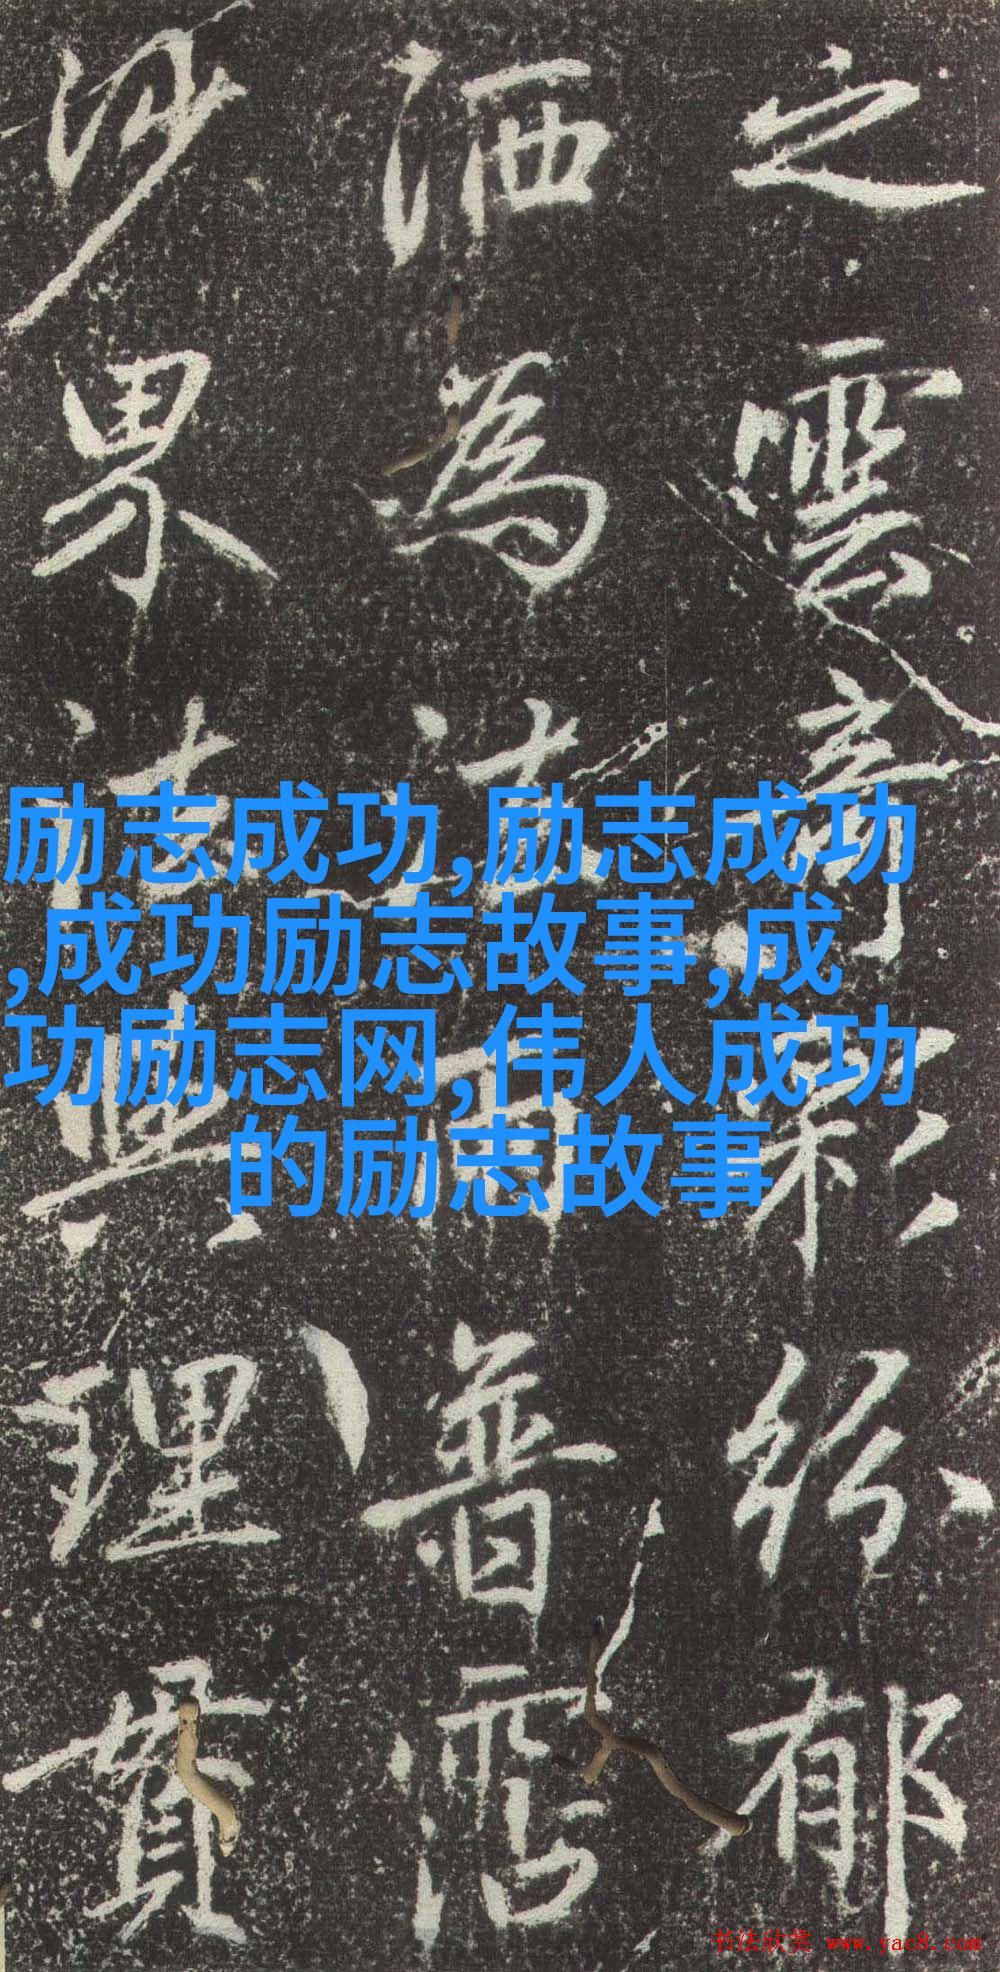 之雲彩紛郁
洒為法雨普霑
沙界法與理貫
励志成功,励志成功
,成功励志故事,成
功励志网,伟人成功
的励志故事
书法欣赏 www.yac8.com